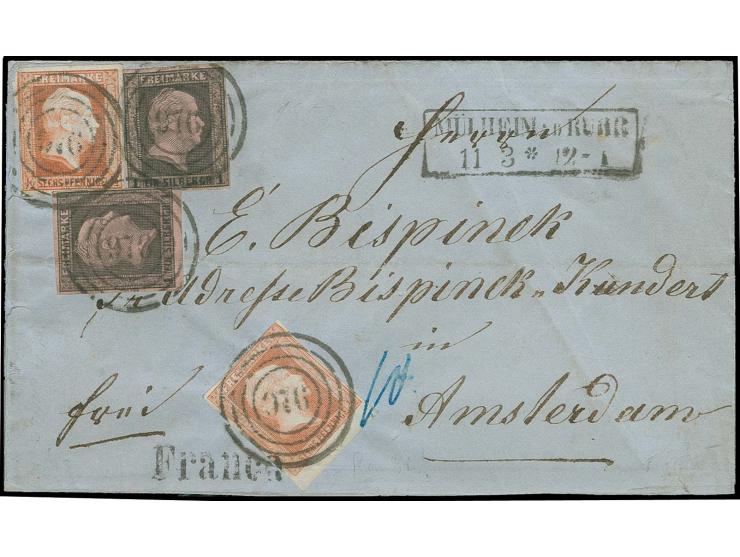 FREIMARKE
976
½ SECHS PFENNIG
FREIMARKE
976
1 EIN SILBERGR. 1
FREIMARKE
976
MÜLHEIM a D RUHR
11 3 * 12-1
Herrn
E. Bispinck
pr Adresse Bispinck & Kundert
in
Amsterdam
frei
FREIMARKE
976
Franco